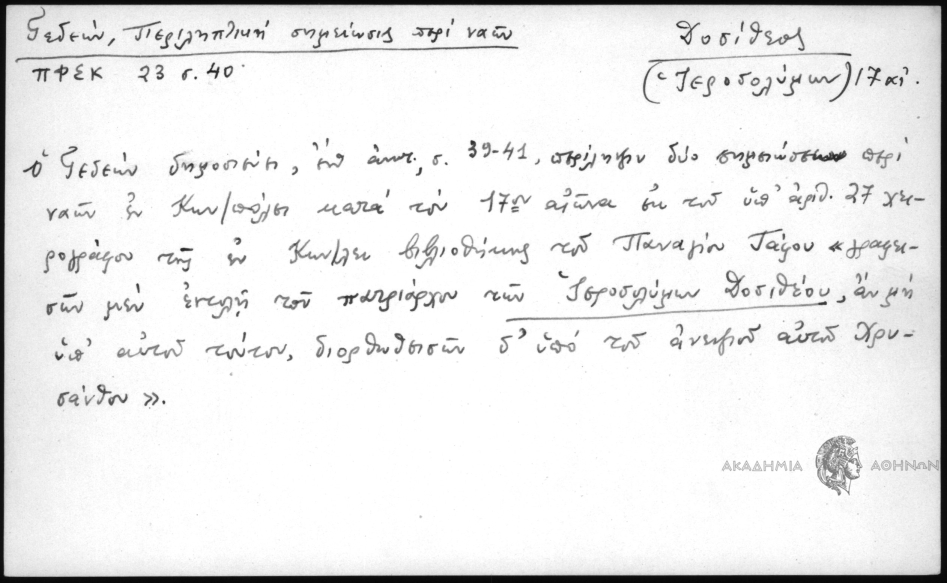 Γεδεών, Περιληπτική σημείωσις περί ναῶν
ΠΦΣΚ 23 σ. 40.
Δοσίθεος
(Ἱεροσολύμων) 17 αἰ.
ὁ Γεδεών δημοσιεύει, ἐνθ' ἀνωτ., σ. 39-41, περίληψιν δύο σημειώσεων περί
ναῶν ἐν Κων/πόλει κατά τόν 17ον αἰῶνα ἐκ τοῦ ὑπ' ἀριθ. 27 χει-
ρογράφου τῆς ἐν Κων/λει βιβλιοθήκης τοῦ Παναγίου Τάφου «γραφει-
σῶν μέν ἐντολῇ τοῦ πατριάρχου τῶν Ἱεροσολύμων Δοσιθέου, ἄν μή
ὑπ' αὐτοῦ τούτου, διορθωθεισῶν δ' ὑπό τοῦ ἀνεψιοῦ αὐτοῦ Χρυ-
σάνθου».
ΑΚΑΔΗΜΙΑ ΑΘΗΝΩΝ